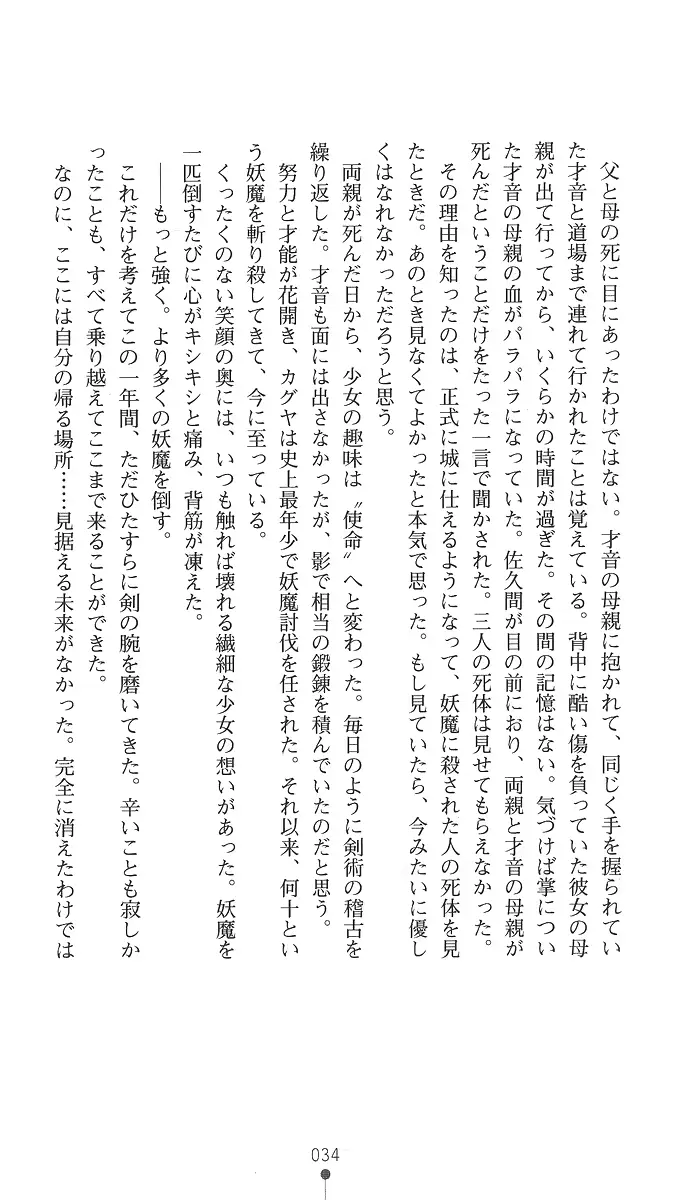 父と母の死に目にあったわけではない。才音の母親に抱かれて、同じく手を握られてい
た才音と道場まで連れて行かれたことは覚えている。背中に酷い傷を負っていた彼女の母
親が出て行ってから、いくらかの時間が過ぎた。その間の記憶はない。気づけば掌につい
た才音の母親の血がパラパラになっていた。佐久間が目の前におり、両親と才音の母親が
死んだということだけをたった一言で聞かされた。三人の死体は見せてもらえなかった。
その理由を知ったのは、正式に城に仕えるようになって、妖魔に殺された人の死体を見
たときだ。あのとき見なくてよかったと本気で思った。もし見ていたら、今みたいに優し
くはなれなかっただろうと思う。
両親が死んだ日から、少女の趣味は〝使命〟へと変わった。毎日のように剣術の稽古を
繰り返した。才音も面には出さなかったが、影で相当の鍛錬を積んでいたのだと思う。
努力と才能が花開き、カグヤは史上最年少で妖魔討伐を任された。それ以来、何十とい
う妖魔を斬り殺してきて、今に至っている。
くったくのない笑顔の奥には、いつも触れば壊れる繊細な少女の想いがあった。妖魔を
一匹倒すたびに心がキシキシと痛み、背筋が凍えた。
――もっと強く。より多くの妖魔を倒す。
これだけを考えてこの一年間、ただひたすらに剣の腕を磨いてきた。辛いことも寂しか
ったことも、すべて乗り越えてここまで来ることができた。
なのに、ここには自分の帰る場所……見据える未来がなかった。完全に消えたわけでは
034